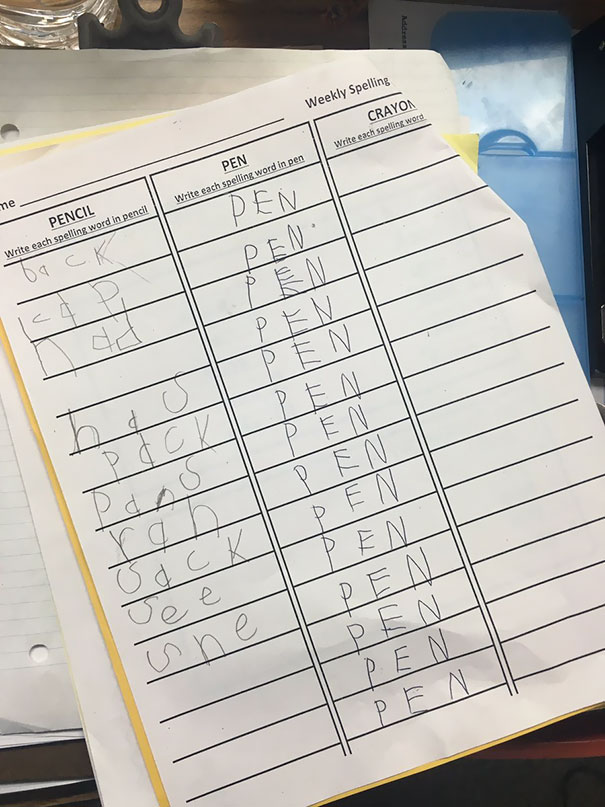 Weekly Spelling
me
PENCIL
Write each spelling word in pencil
back
cap
had
has
pack
pans
ran
sack
see
she
PEN
Write each spelling word in pen
PEN
PEN
PEN
PEN
PEN
PEN
PEN
PEN
PEN
PEN
PEN
PEN
PEN
PEN
CRAYON
Write each spelling word